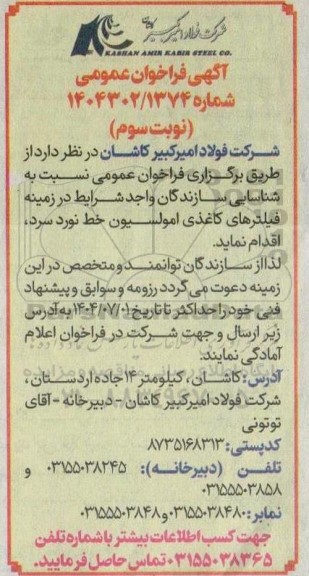 شرکت فولاد امیرکبیر کاشان
KASHAN AMIR KABIR STEEL CO.
آگهی فراخوان عمومی
شماره ۱۴۰۴۳۰۲/۱۳۷۴
(نوبت سوم)
شرکت فولاد امیرکبیر کاشان در نظر دارد از
طریق برگزاری فراخوان عمومی نسبت به
شناسایی سازندگان واجد شرایط در زمینه
فیلترهای کاغذی امولسیون خط نورد سرد،
اقدام نماید.
لذا از سازندگان توانمند و متخصص در این
زمینه دعوت می گردد رزومه و سوابق و پیشنهاد
فنی خود را حداکثر تا تاریخ ۱۴۰۴/۰۷/۰۱ به آدرس
زیر ارسال و جهت شرکت در فراخوان اعلام
آمادگی نمایند.
آدرس: کاشان، کیلومتر ۱۴ جاده اردستان،
شرکت فولاد امیرکبیر کاشان - دبیرخانه - آقای
توتونی
کدپستی: ۸۷۳۵۱۶۸۳۱۳
تلفن (دبیرخانه): ۰۳۱۵۵۰۳۸۲۴۵ و
۰۳۱۵۵۵۰۳۸۵۸
نمابر: ۰۳۱۵۵۰۳۸۴۸۰ و ۰۳۱۵۵۵۰۳۸۴۸
جهت کسب اطلاعات بیشتر با شماره تلفن
۰۳۱۵۵۰۳۸۳۶۵ تماس حاصل فرمایید.